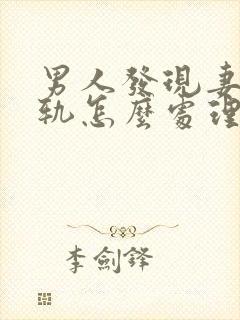 男人發現妻
軌怎麼處理
李劍鋒